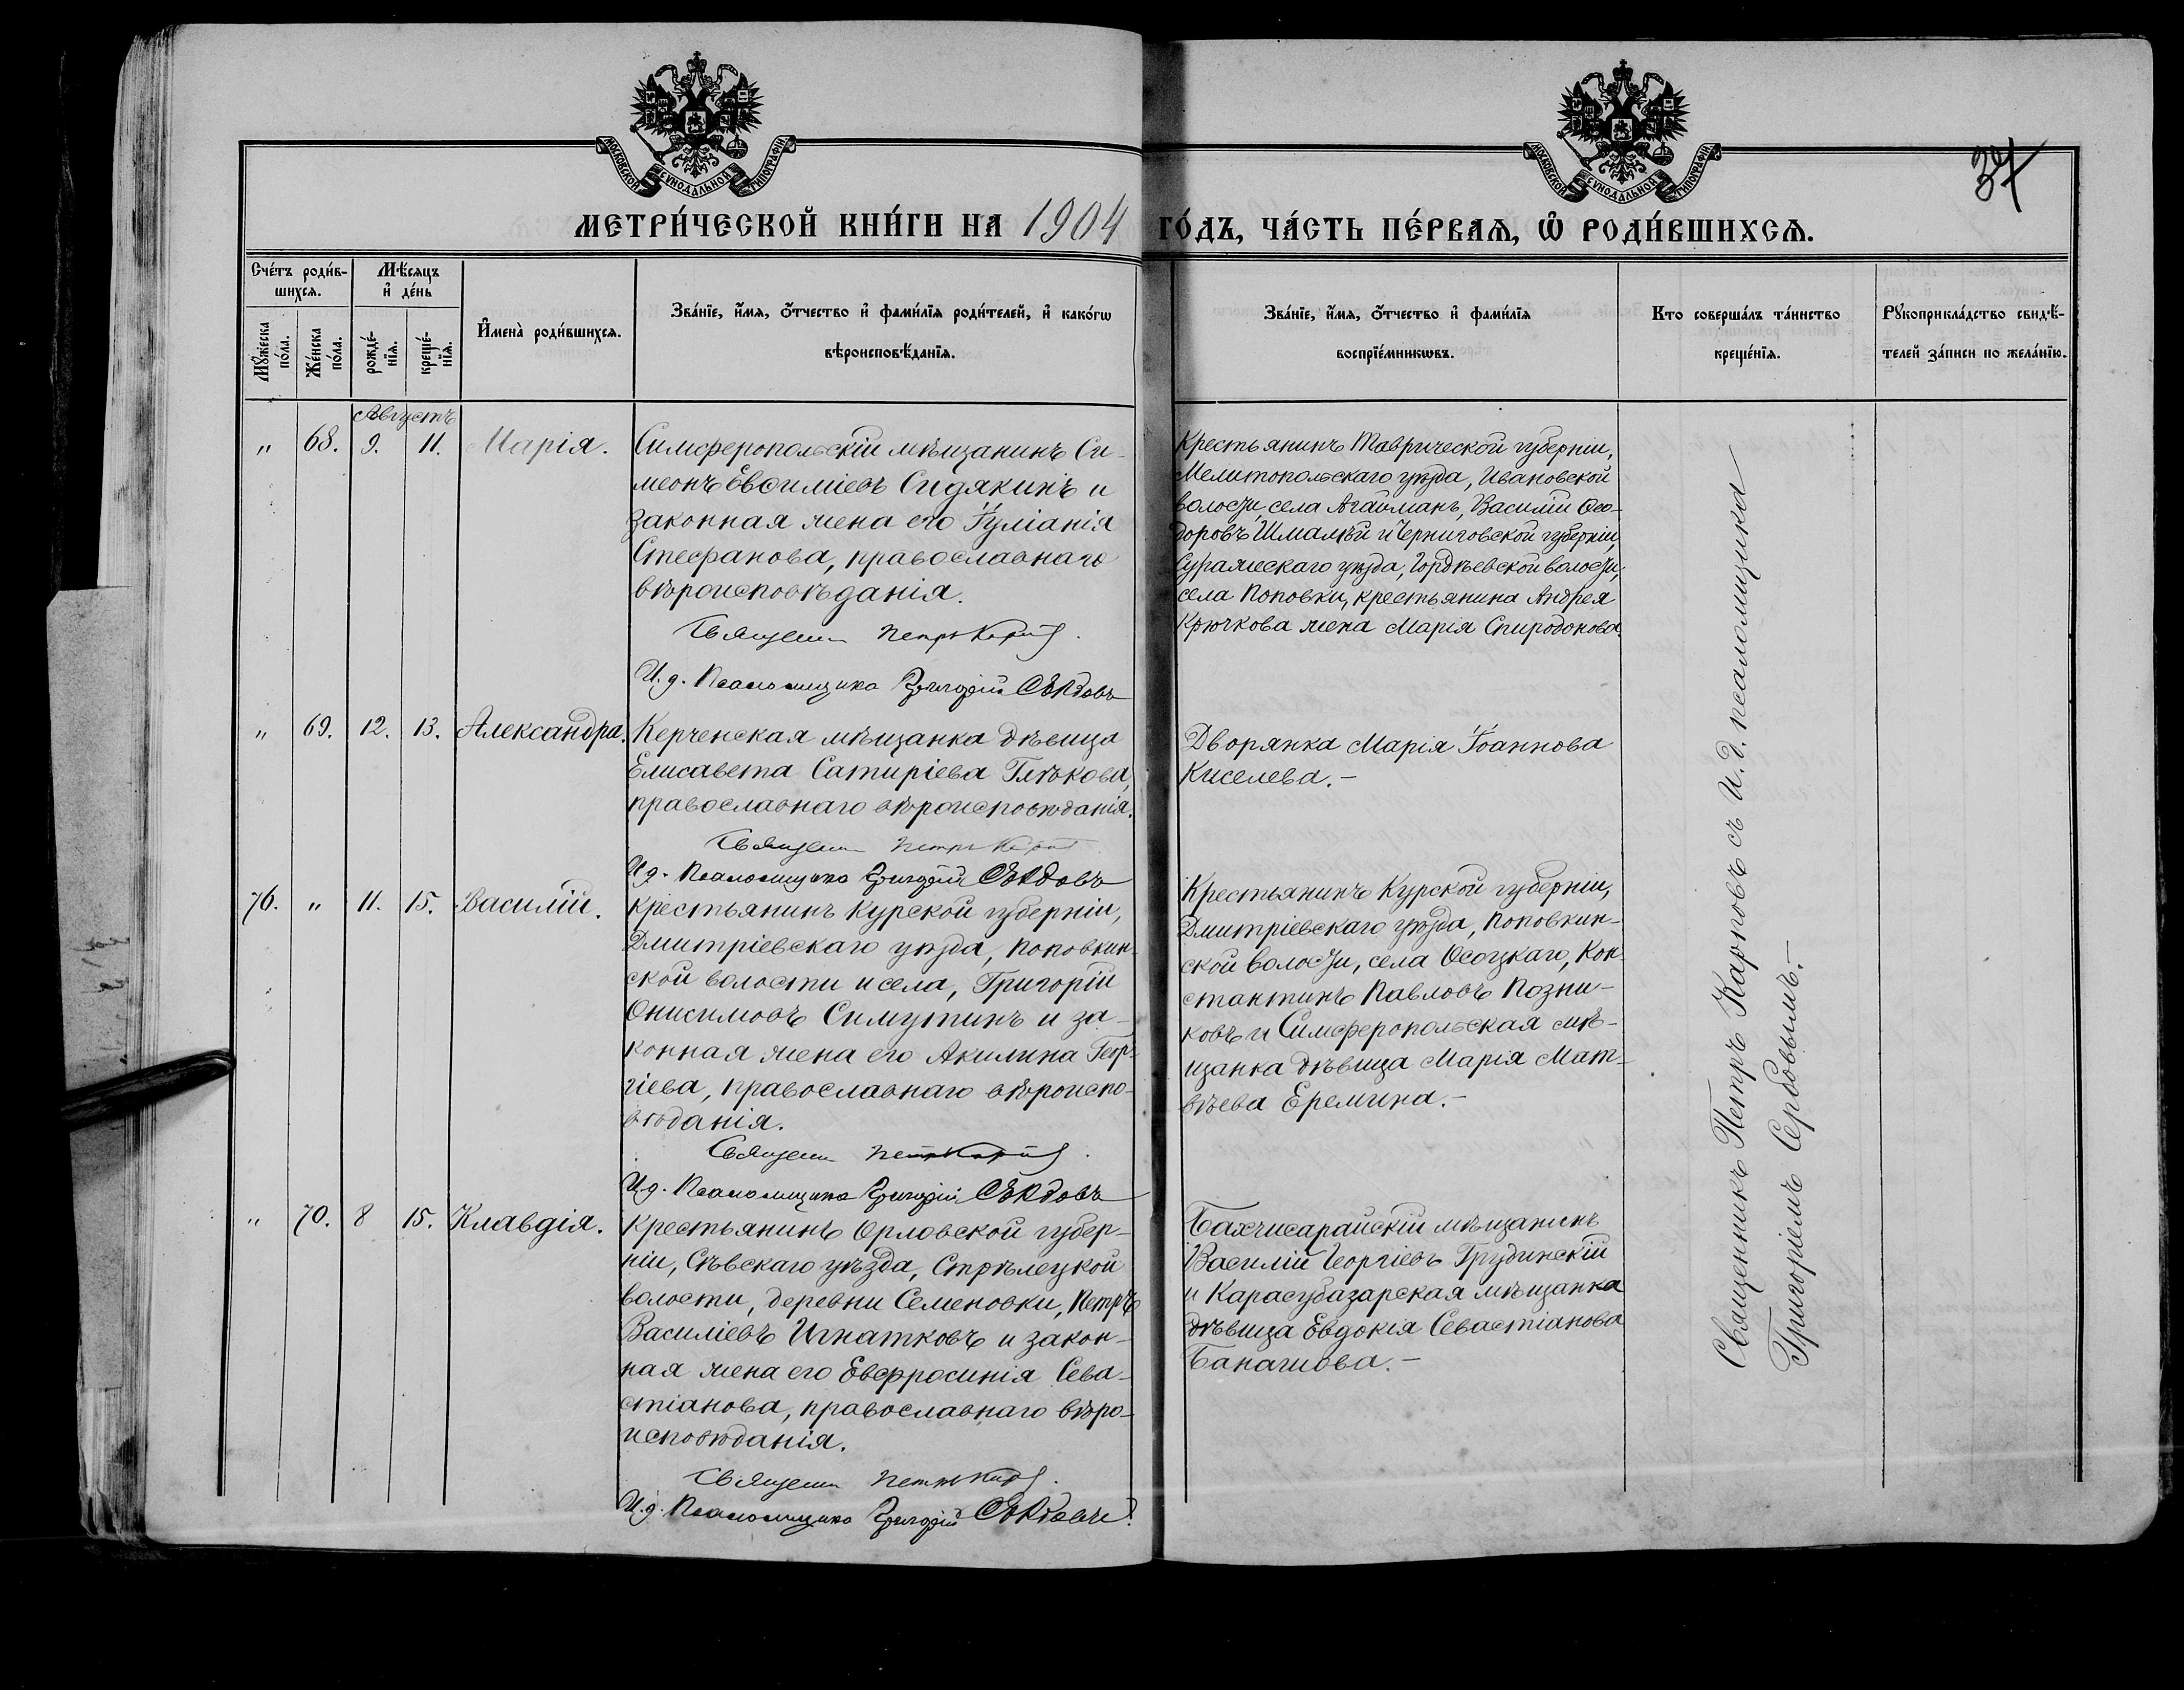 МОСКОВСКОЙ СѴНОДАЛЬНОЙ ТИПОГРАФІИ
МОСКОВСКОЙ СѴНОДАЛЬНОЙ ТИПОГРАФІИ
37
МЕТРИ́ЧЕСКОЙ КНИ́ГИ НА 1904 ГО́ДЪ, ЧА́СТЬ ПЕ́РВАѦ, Ѡ҆ РОДИ́ВШИХСѦ.
Сче́тъ роди́в-
шихсѧ.
Мꙋ́жеска по́ла.
Же́нска по́ла.
Мѣ́сѧцъ
и҆ де́нь
рожде́-нїѧ.
креще́-нїѧ.
И҆мена̀ роди́вшихсѧ.
Зва́нїе, и҆́мѧ, ѻ҆́тчество и҆ фами́лїѧ роди́телей, и҆ како́гѡ
вѣроисповѣ́данїѧ.
Зва́нїе, и҆́мѧ, ѻ҆́тчество и҆ фами́лїѧ
воспрїе́мникѡвъ.
Кто соверша́лъ та́инство
креще́нїѧ.
Рꙋкоприкла́дство свидѣ́-
телей за́писи по жела́нїю.
Августъ
" 68. 9. 11. Марія.
Симферопольскій мѣщанинъ Си-
меонъ Евѳиміевъ Сидякинъ и
законная жена его Іуліанія
Стефанова, православнаго
вѣроисповѣданія.
Священ Петръ Карповъ
И. д. Псаломщика Григорій Сербовъ
Крестьянинъ Таврической губерніи,
Мелитопольскаго уѣзда, Ивановской
волости, села Агайманъ, Василій Ѳео-
доровъ Шмалѣй и Черниговской губерніи,
Суражскаго уѣзда, Гордѣевской волости,
села Поповки, крестьянина Андрея
Крючкова жена Марія Спиродонова.
" 69. 12. 13. Александра.
Керченская мѣщанка дѣвица
Елисавета Сатиріева Глѣкова,
православнаго вѣроисповѣданія.
Священ Петръ Карповъ
И д. Псаломщика Григорій Сербовъ
Дворянка Марія Іоаннова
Киселева.-
76. " 11. 15. Василій.
Крестьянинъ Курской губерніи,
Дмитріевскаго уѣзда, Поповкин-
ской волости и села, Григорій
Онисимовъ Симутинъ и за-
конная жена его Акилина Геор-
гіева, православнаго вѣроиспо-
вѣданія.
Священ Петръ Карповъ
И д. Псаломщика Григорій Сербовъ
Крестьянинъ Курской губерніи,
Дмитріевскаго уѣзда, Поповкин-
ской волости, села Осоцкаго, Кон-
стантинъ Павловъ Позни-
ковъ и Симферопольская мѣ-
щанка дѣвица Марія Мат-
вѣева Еремина.-
" 70. 8 15. Клавдія.
Крестьянинъ Орловской губер-
ніи, Сѣвскаго уѣзда, Стрѣлецкой
волости, деревни Семеновки, Петръ
Василіевъ Игнатковъ и закон-
ная жена его Евфросинія Сева-
стіанова, православнаго вѣро-
исповѣданія.
Священ Петръ Карповъ
И. д. Псаломщика Григорій Сербовъ
Бахчисарайскій мѣщанинъ
Василій Георгіевъ Грудинскій
и Карасубазарская мѣщанка
дѣвица Евдокія Севастіанова
Банашова.-
Священникъ Петръ Карповъ съ И. д. псаломщика
Григоріемъ Сербовымъ.-